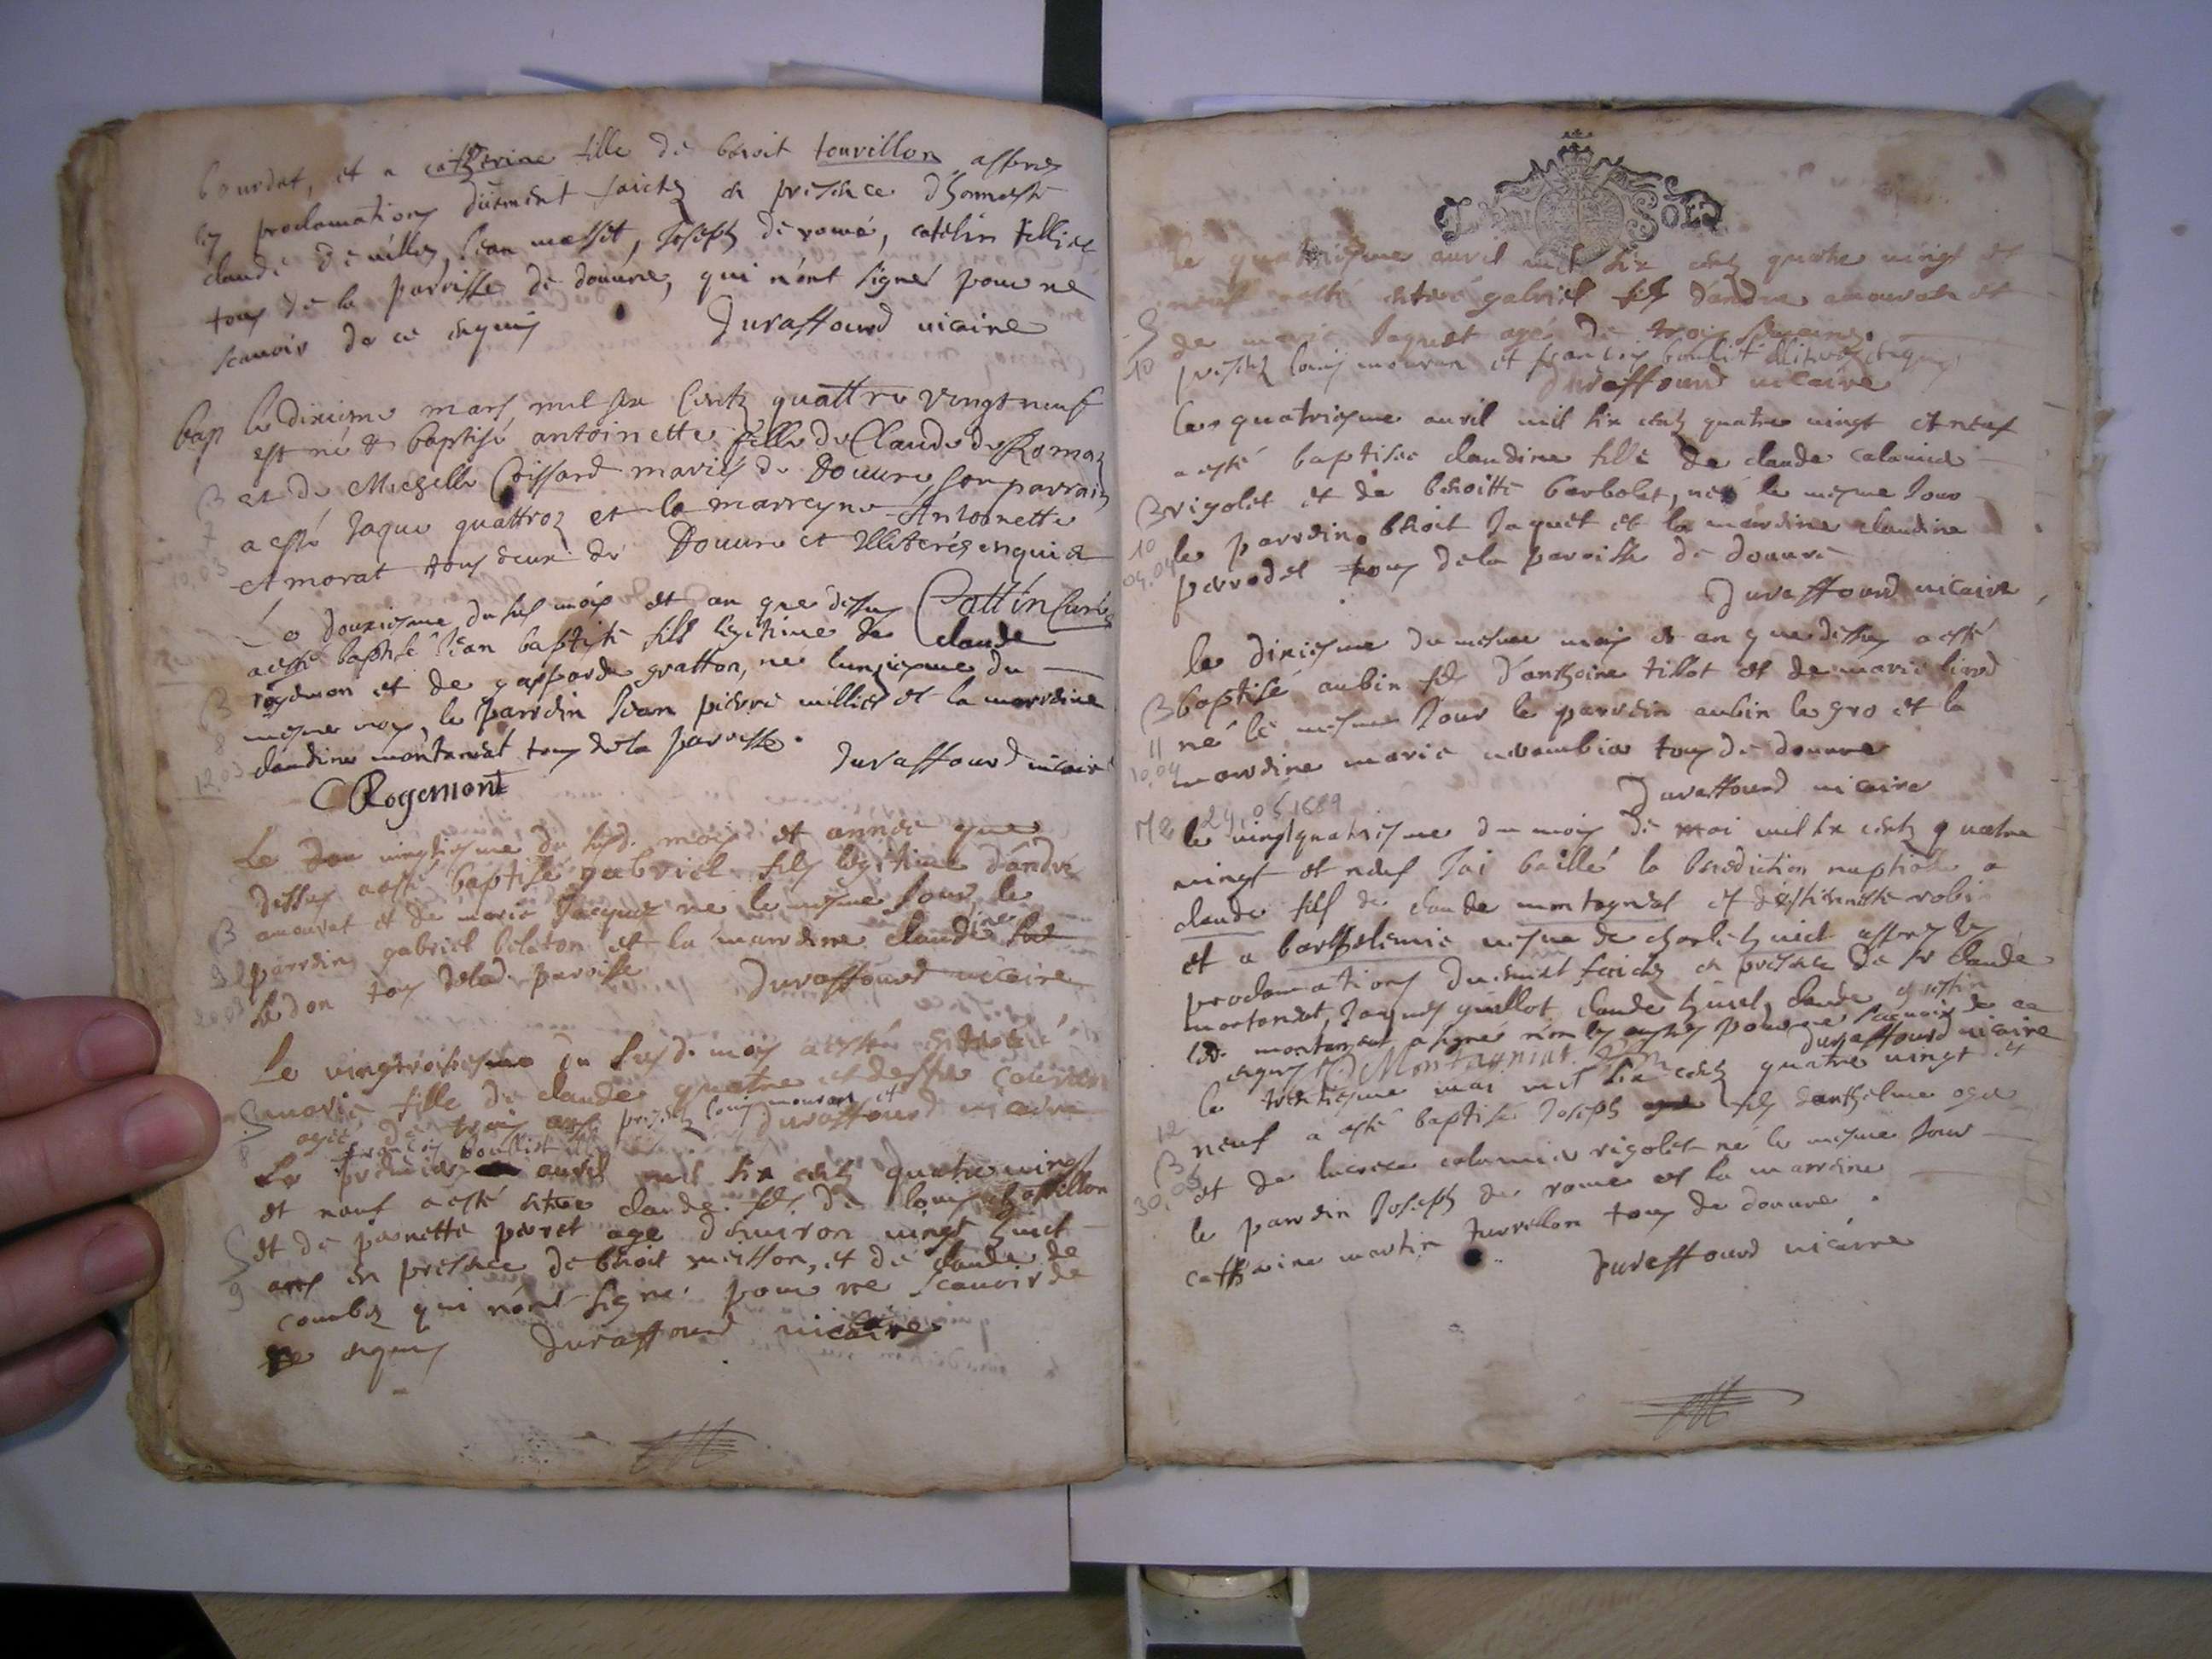 bourdat, et a catherine fille de benoit tourillon appres
les proclamations düement faictes en presence d'honneste
claude jean masset, joseph de romé, catelin tillier
tous de la parroisse de douure, qui n'ont signés pour ne
scauoir de ce enquis Duraffourd uicaire
bap le dixieme mars mil six Centz quattre vingt neuf
est né & baptisé antoinette fille de Claude de Romaz
B et de Michelle Coissard mariés de Douure, son parrain
7 a esté Jaque quattroz et la marreyne Anthoinette
10.03 Amorat tous deux de Douure et Illiterés enquis
Cattin Curé
Le douziesme du sus mois et an que dessus
a esté baptisé jean baptiste fils legitime de claude
rogemon et de gasparde gratton, né lunziesme du
B mesme moys, le parrein jean pierre millier et la marreine
8 12.03 claudine montaniat tous de la parroisse. Duraffourd uicaire
C Rogemont
Le vingtiesme du susd. mois et année que
dessus a esté baptisé gabriel fils legitime d'andré
B amourat et de marie jacquez né le mesme jour, le
9 parrein gabriel beleton et la marreine claudine
20.03 ledon tous de lad. paroisse Duraffourd uicaire
Le vingtroisiesme du susd. mois a esté enterré
S marie fille de claude quatre et de
8 agée de trois ans presentz louis mouran et Duraffourd uicaire
francois boullit
Le premier auril mil six centz quatre uingt
et neuf a esté enterre claude fils de louis chastillon
S et de pernette peret age d'enuiron uingt huit
9 ans en presence de benoit mitton, et de claude de
combes qui n'ont signé pour ne scauoir de
ce enquis Duraffourd uicaire
le quatriesme auril mil six centz quatre uingt et
neuf a esté enterré gabriel fils d'andre amourat et
S de marie jaquet agé de trois semaines
10 presentz louis mouran et francois boullit illiteres enquis
Duraffourd uicaire
le quatriesme auril mil six centz quatre uingt et neuf
a esté baptisée claudine fille de claude calamier
B rigolet et de benoitte berbolet, née le mesme jour
10 le parrein benoit jaquet et la marrine claudine
04.04 perrodet tous de la paroisse de douure
Duraffourd uicaire
le dixiesme du mesme mois et an que dessus a esté
B baptisé aubin fils d'anthoine tillot et de marie
11 né le mesme jour le parrein aubin le gro et la
10.04 marreine marie tous de douure
Duraffourd uicaire
M 2 24.05 1689
le uingtquatriesme du mois de mai mil six centz quatre
uingt et neuf j'ai baillé la benediction nuptiale a
claude fils de claude montagniat et d'estiennette robi
et a barthelemie de charle huict appres les
proclamations duement faictes en presence de sr claude
montaniat jaques guillot claude huict, claude
led. montaniat a signé non les autres pour ne scauoir de ce
enquis Montagniat Duraffourd uicaire
le trentiesme mai mil six centz quatre uingt et
12 neuf a esté baptisé joseph fils d'anthelme oger
B et de lucresse calamier rigolet né le mesme jour
30.05 le parrein joseph de rome et la marreine
catherine martin turrillon tous de douure.
Duraffourd uicaire